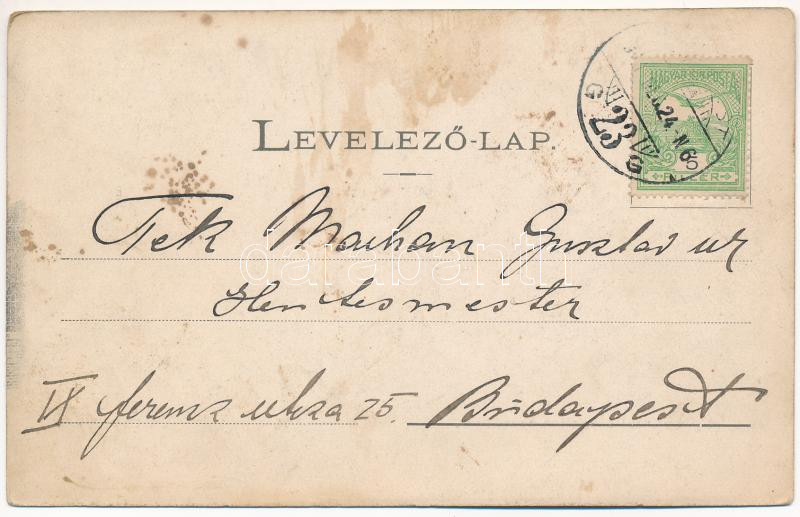 LEVELEZŐ-LAP.
MAGYAR KIR. POSTA
24. N6
23
G G
Tek Maihan Gusztáv úr
Hentesmester
IX ferenz utcza 25. Budapest
darabanth